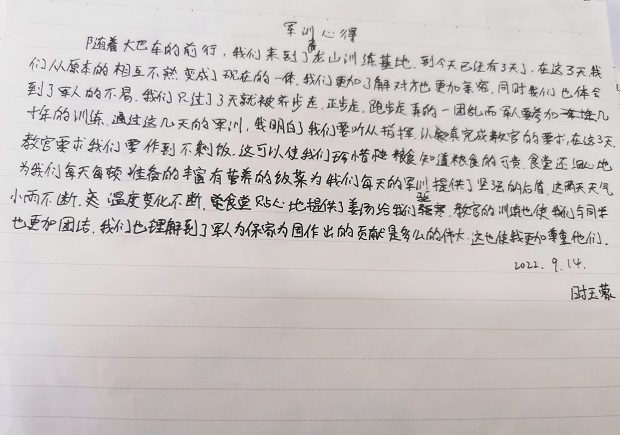 军训心得
随着大巴车的前行,我们来到了龙山训练基地,到今天已经有3天了,在这3天我
们从原本的相互不熟变成了现在的一体,我们更加了解对方也更加亲密,同时我们也体会
到了军人的不易,我们只过了3天就被齐步走,正步走,跑步走弄的一团乱而军人要参加几
十年的训练,通过这几天的军训,我明白了我们要听从指挥,认真完成教官的要求,在这3天,
教官要求我们要作到不剩饭,这可以使我们珍惜粮食知道粮食的可贵,食堂还细心地
为我们每天每顿准备的丰富有营养的饭菜为我们每天的军训提供了坚强的后盾,这两天天气
小雨不断,温度变化不断,食堂贴心地提供了姜汤给我们驱寒,教官的训练也使我们与同学
也更加团结,我们也理解到了军人为保家为国作出的贡献是多么的伟大,这也使我更加尊重他们.
2022.9.14.
时玉蒙